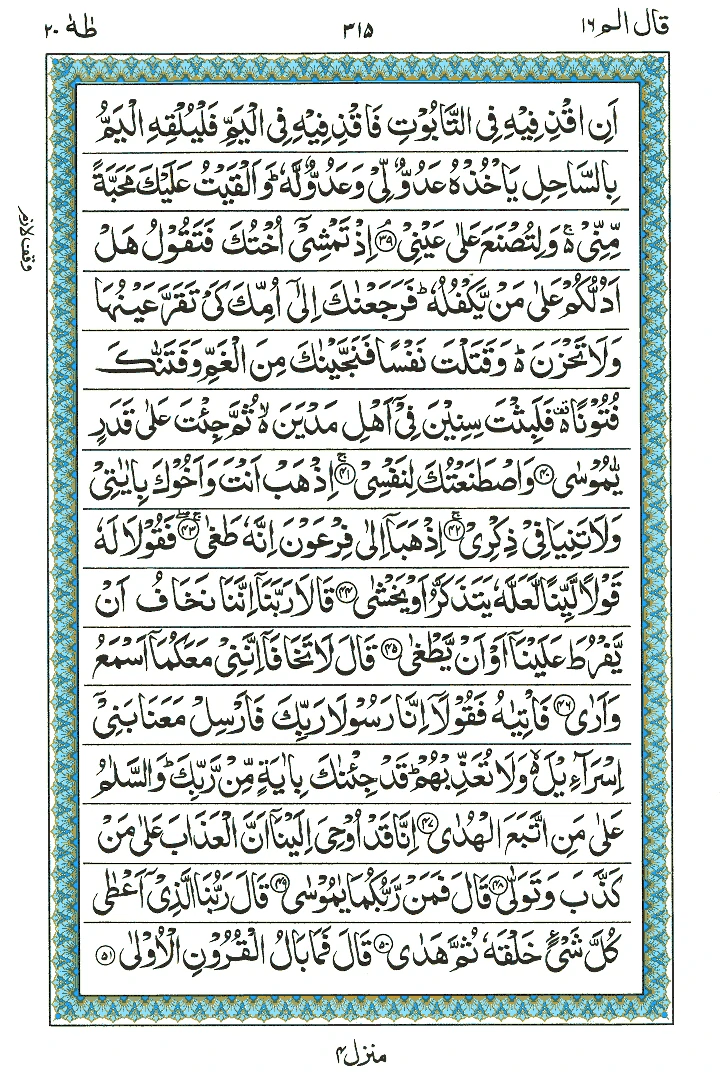 قال الم ١٦ ٣١٥ طٰهٰ ٢٠
اَنِ اقْذِفِیْهِ فِی التَّابُوْتِ فَاقْذِفِیْهِ فِی الْیَمِّ فَلْیُلْقِهِ الْیَمُّ
بِالسَّاحِلِ یَاْخُذْهُ عَدُوٌّ لِّیْ وَعَدُوٌّ لَّهٗ ؕ وَاَلْقَیْتُ عَلَیْكَ مَحَبَّةً
مِّنِّیْ ۚ۬ وَلِتُصْنَعَ عَلٰی عَیْنِیْ ۘ﴿۳۹﴾ اِذْ تَمْشِیْۤ اُخْتُكَ فَتَقُوْلُ هَلْ
اَدُلُّكُمْ عَلٰی مَنْ یَّكْفُلُهٗ ؕ فَرَجَعْنٰكَ اِلٰۤی اُمِّكَ كَیْ تَقَرَّ عَیْنُهَا
وَلَا تَحْزَنَ ؕ۬ وَقَتَلْتَ نَفْسًا فَنَجَّیْنٰكَ مِنَ الْغَمِّ وَفَتَنّٰكَ
فُتُوْنًا ۫۬ فَلَبِثْتَ سِنِیْنَ فِیْۤ اَهْلِ مَدْیَنَ ۬ۙ ثُمَّ جِئْتَ عَلٰی قَدَرٍ
یّٰمُوْسٰی ﴿۴۰﴾ وَاصْطَنَعْتُكَ لِنَفْسِیْ ۚ﴿۴۱﴾ اِذْهَبْ اَنْتَ وَاَخُوْكَ بِاٰیٰتِیْ
وَلَا تَنِیَا فِیْ ذِكْرِیْ ۚ﴿۴۲﴾ اِذْهَبَاۤ اِلٰی فِرْعَوْنَ اِنَّهٗ طَغٰی ۚۖ﴿۴۳﴾ فَقُوْلَا لَهٗ
قَوْلًا لَّیِّنًا لَّعَلَّهٗ یَتَذَكَّرُ اَوْ یَخْشٰی ﴿۴۴﴾ قَالَا رَبَّنَاۤ اِنَّنَا نَخَافُ اَنْ
یَّفْرُطَ عَلَیْنَاۤ اَوْ اَنْ یَّطْغٰی ﴿۴۵﴾ قَالَ لَا تَخَافَاۤ اِنَّنِیْ مَعَكُمَاۤ اَسْمَعُ
وَاَرٰی ﴿۴۶﴾ فَاْتِیٰهُ فَقُوْلَاۤ اِنَّا رَسُوْلَا رَبِّكَ فَاَرْسِلْ مَعَنَا بَنِیْۤ
اِسْرَآءِیْلَ ۬ۙ وَلَا تُعَذِّبْهُمْ ؕ قَدْ جِئْنٰكَ بِاٰیَةٍ مِّنْ رَّبِّكَ ؕ وَالسَّلٰمُ
عَلٰی مَنِ اتَّبَعَ الْهُدٰی ﴿۴۷﴾ اِنَّا قَدْ اُوْحِیَ اِلَیْنَاۤ اَنَّ الْعَذَابَ عَلٰی مَنْ
كَذَّبَ وَتَوَلّٰی ﴿۴۸﴾ قَالَ فَمَنْ رَّبُّكُمَا یٰمُوْسٰی ﴿۴۹﴾ قَالَ رَبُّنَا الَّذِیْۤ اَعْطٰی
كُلَّ شَیْءٍ خَلْقَهٗ ثُمَّ هَدٰی ﴿۵۰﴾ قَالَ فَمَا بَالُ الْقُرُوْنِ الْاُوْلٰی ﴿۵۱﴾
وقف لازم
منزل ۴